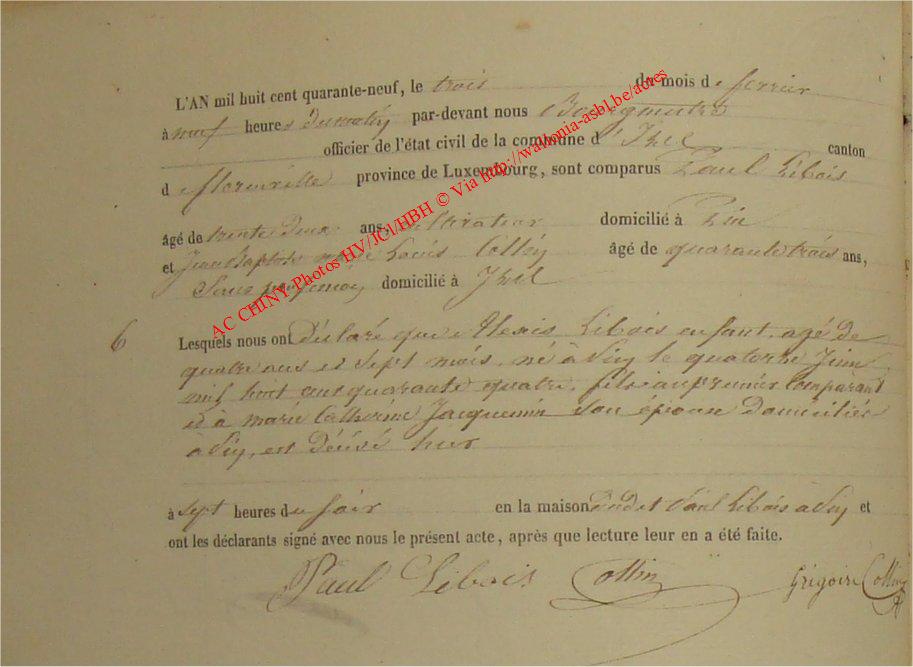 L'AN mil huit cent quarante-neuf, le trois du mois de fevrier
à neuf heures du matin par-devant nous Bourgmestre
officier de l'état civil de la commune d'Izel canton
de florenville province de Luxembourg, sont comparus Paul Lebois
âgé de trente deux ans, cultivateur domicilié à Pin
et Jean Baptiste Louis Collin âgé de quarante trois ans,
domicilié à Izel
6 Lesquels nous ont déclaré que Alexis Lebois enfant, agé de
quatre ans et sept mois, né à Pin le quatorze Juin
mil huit cent quarante quatre, fils au premier Comparant
et à marie Catherine Jacquemin son épouse domiciliés
à Pin, est décédé hier
à sept heures du soir en la maison dudit Paul Lebois à Pin et
ont les déclarants signé avec nous le présent acte, après que lecture leur en a été faite.
Paul Lebois Collin Grégoire Collin
AC CHINY Photos HV/JCl/HBH © Via http://wallonia-asbl.be/actes